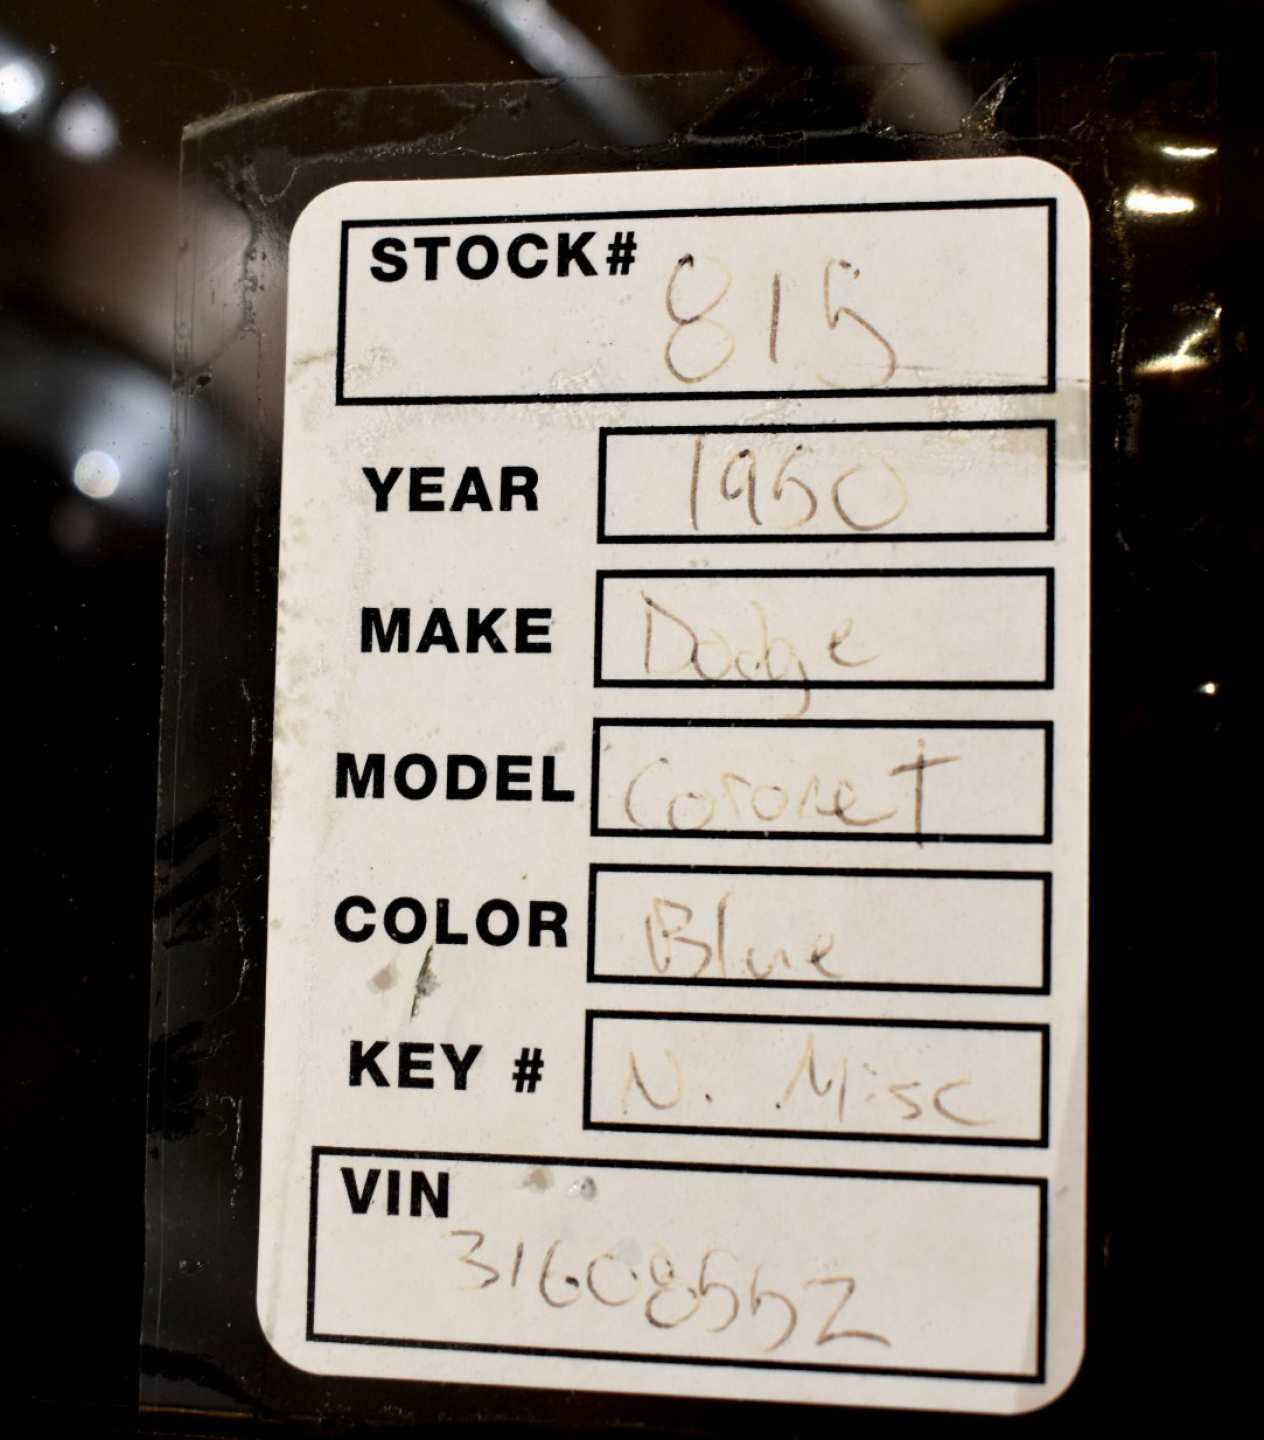 STOCK# 815
YEAR 1950
MAKE Dodge
MODEL Coronet
COLOR Blue
KEY # N. Misc
VIN
31608552